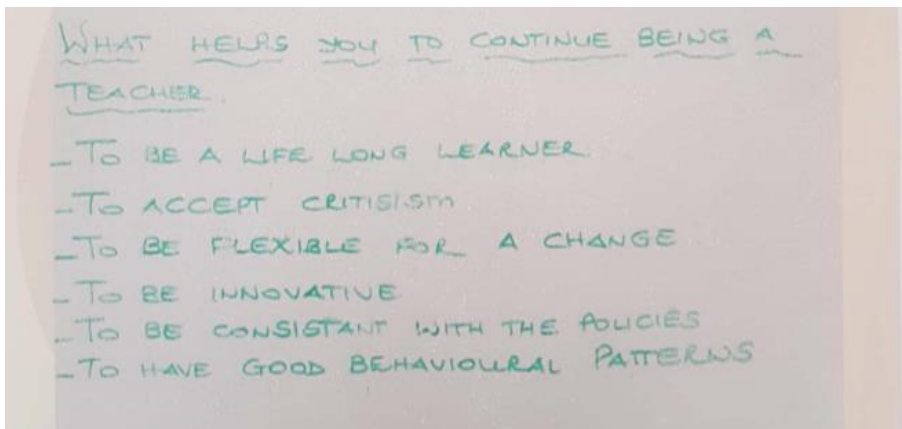 WHAT HELPS YOU TO CONTINUE BEING A
TEACHER.
- TO BE A LIFE LONG LEARNER
- TO ACCEPT CRITISISM
- TO BE FLEXIBLE FOR A CHANGE
- TO BE INNOVATIVE
- TO BE CONSISTANT WITH THE POLICIES
- TO HAVE GOOD BEHAVIOURAL PATTERNS